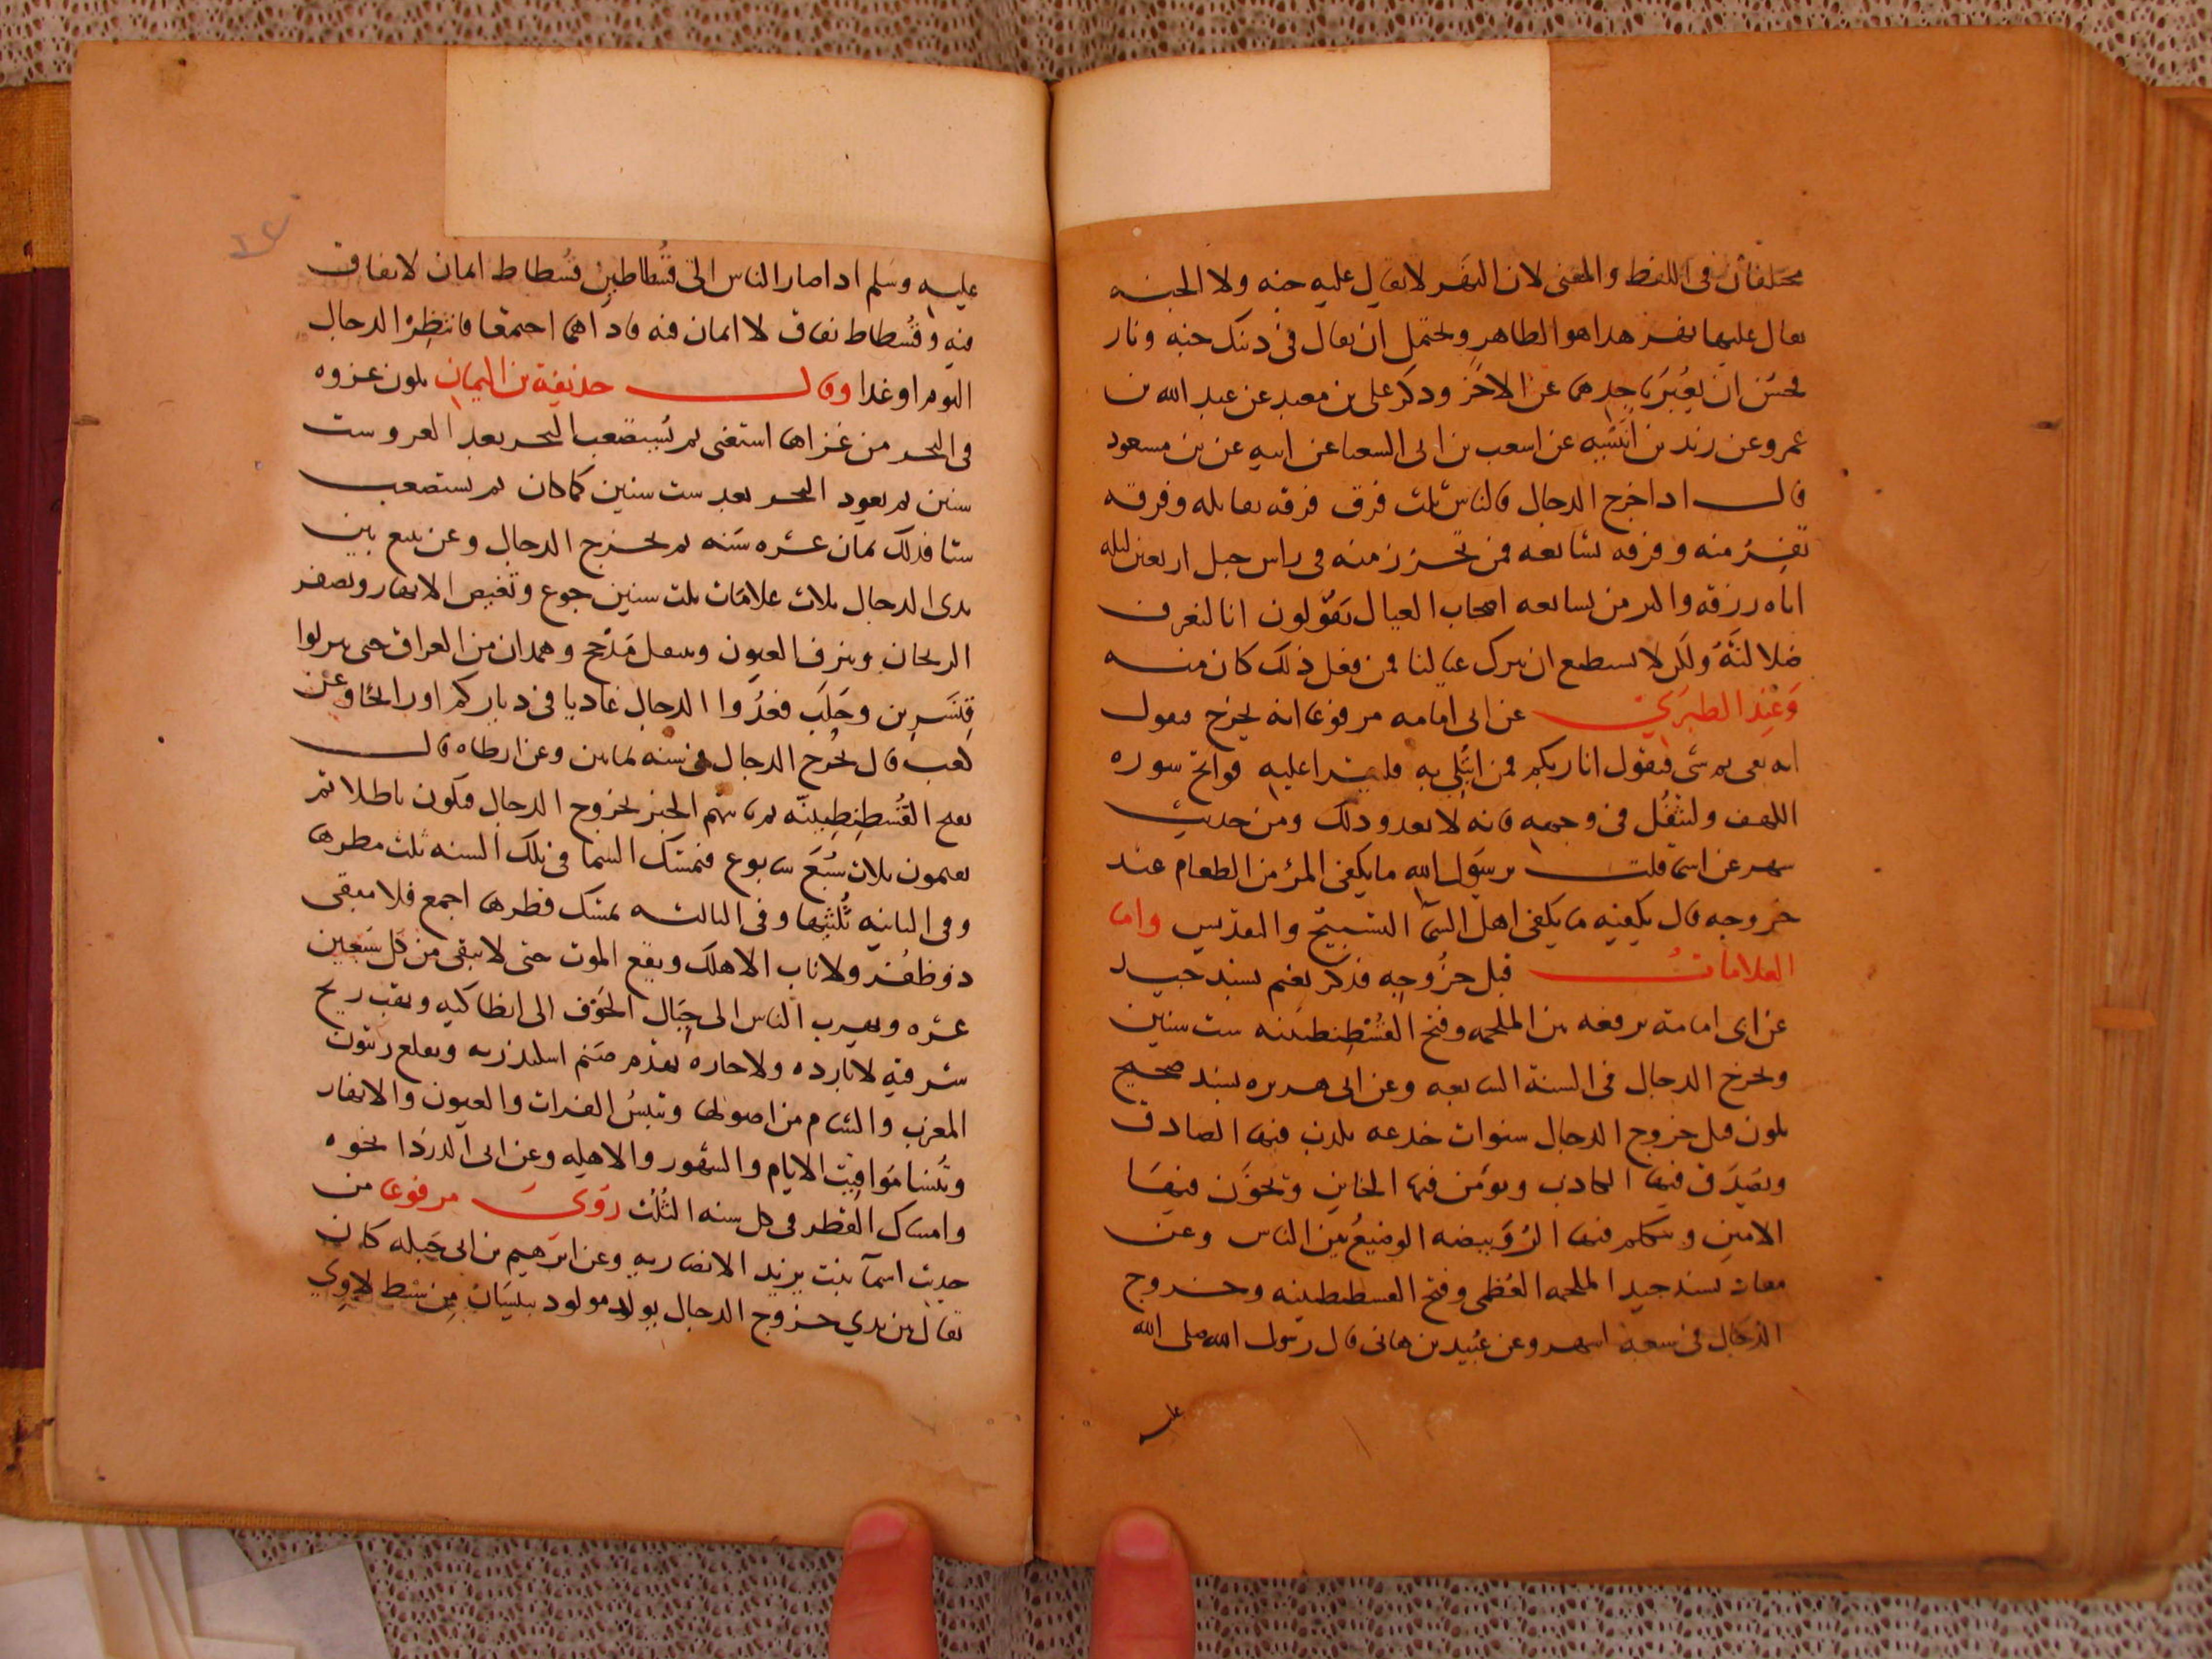 مختلفان في اللفظ والمعنى لان النهر لا يقال عليه جنه ولا الجنه
يقال عليها نهر هذا هو الظاهر ويحتمل ان يقال في ذينك جنه ونار
فحسن ان يعبر باحدهما عن الاخر وذكر علي بن معبد عن عبد الله بن
عمرو عن زيد بن انيسه عن اشعب بن ابي الشعثا عن ابيه عن بن مسعود
قال اذا خرج الدجال فالناس ثلث فرق فرقه تقاتله وفرقه
تفر منه وفرقه تشايعه فمن تحرز منه في راس جبل اربعين ليله
اتاه رزقه واكثر من يشايعه اصحاب العيال يقولون انا لنعرف
ضلالته ولكن لا نستطيع ان نترك عيالنا فمن فعل ذلك كان منه
وعند الطبري عن ابي امامه مرفوعا انه يخرج فيقول
انه نبي ثم يثني فيقول انا ربكم فمن ابتلي به فليقرا عليه فواتح سوره
الكهف وليتفل في وجهه فانه لا يعدو ذلك ومن حديث
شهر عن اسما قلت يرسول الله ما يكفي المؤمن الطعام عند
خروجه قال يكفيه ما يكفي اهل السما التسبيح والتقديس واما
العلامات قبل خروجه فذكر نعيم بسند جيد
عن ابي امامة يرفعه بين الملحمه وفتح القسطنطينيه ست سنين
ويخرج الدجال في السنة السابعه وعن ابي هريره بسند صحيح
يكون قبل خروج الدجال سنوات خدعه يكذب فيها الصادق
ويصدق فيها الكاذب ويؤتمن فيها الخاين ويخون فيها
الامين ويتكلم فيها الرويبضه الوضيع بين الناس وعن
معاذ بسند جيد الملحمه العظمى وفتح القسطنطينيه وخروج
الدجال في سبعه اشهر وعن عبيد بن هاني قال رسول الله صلى الله
عليه
عليه وسلم اذا صار الناس الى فسطاطين فسطاط ايمان لا نفاق
فيه وفسطاط نفاق لا ايمان فيه فاذا هما اجتمعا فانتظر الدجال
اليوم او غدا وقال حذيفة بن اليمان يكون غزوه
في البحر من غزاها استغنى ثم يستصعب البحر بعد الغزو ست
سنين ثم يعود البحر بعد ست سنين كما كان ثم يستصعب
ستا فذلك ثمان عشره سنه ثم يخرج الدجال وعن تبيع بين
يدي الدجال ثلاث علامات ثلث سنين جوع وتغيض الانهار ويصفر
الريحان وينزف العيون وينتقل مذحج وهمدان من العراق حتى ينزلوا
قنسرين وحلب فعدوا الدجال غاديا في دياركم او رايحا وعن
كعب قال يخرج الدجال في سنه ثمانين وعن ارطاه قال
يفتح القسطنطينيه ثم ياتيهم الخبر بخروج الدجال فيكون باطلا ثم
يقيمون ثلاث سبع سابوع فتمسك السما في تلك السنه ثلث مطرها
وفي الثانيه ثلثيها وفي الثالثه يمسك قطرها اجمع فلا يبقى
ذو ظفر ولا ناب الا هلك ويقع الموت حتى لا يبقى من كل سبعين
عشره ويهرب الناس الى جبال الجوف الى انطاكيه ويهب ريح
شرقيه لا بارده ولا حاره يهدم صنم اسكندريه ويقلع زيتون
المغرب والشام من اصولها وتيبس الفرات والعيون والانهار
وتنسا مواقيت الايام والشهور والاهله وعن ابي الدردا نحوه
وامساك القطر في كل سنه الثلث روى مرفوعا من
حديث اسما بنت يزيد الانصاريه وعن ابراهيم بن ابي حبله كان
يقال بين يدي خروج الدجال يولد مولود ببيسان من سبط لاوي